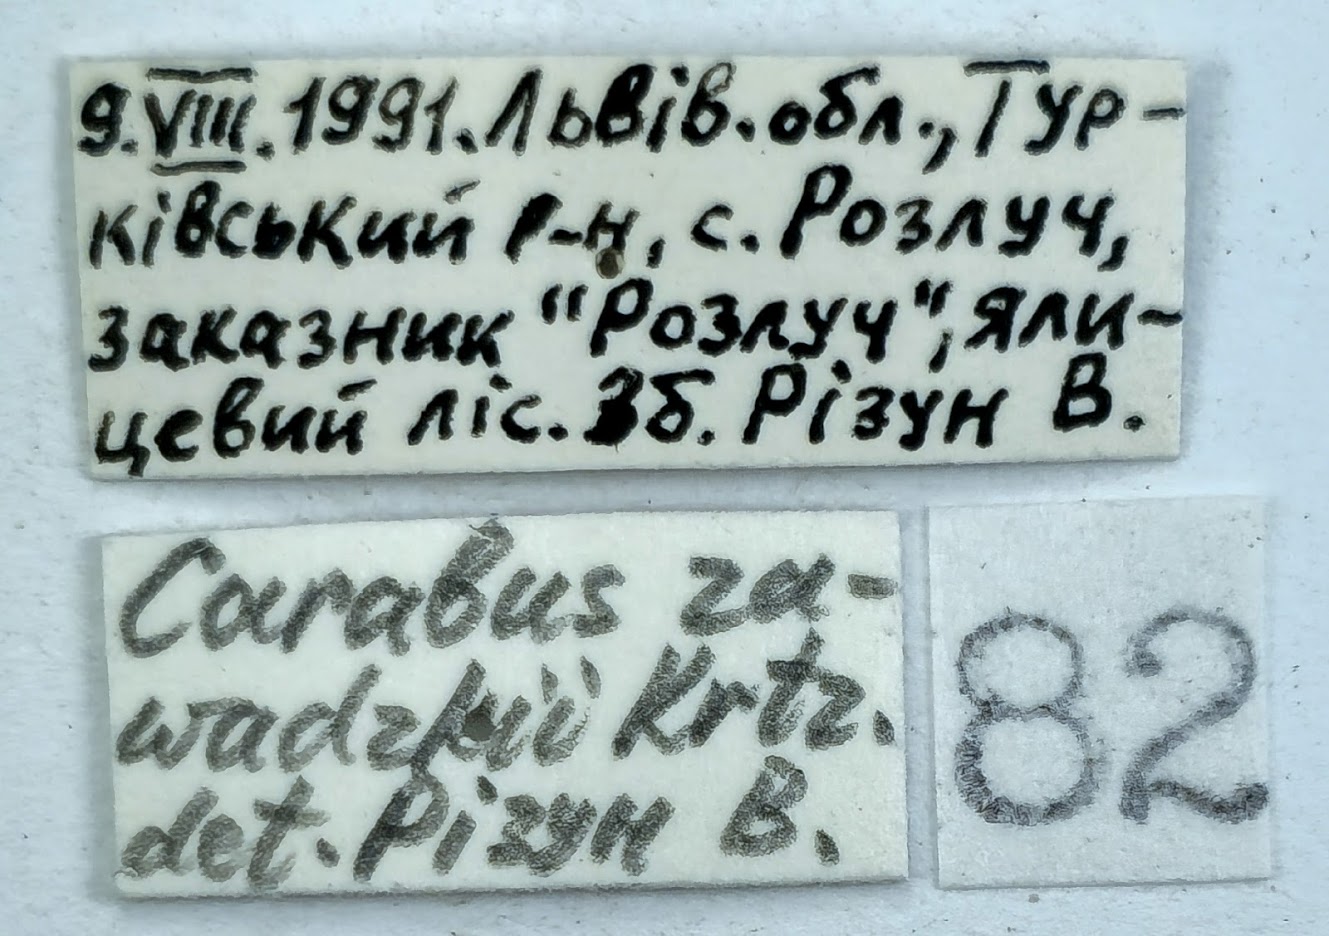 9.VIII.1991.Львів.обл., Тур-
ківський р-н, с. Розлуч,
заказник "Розлуч", яли-
цевий ліс. Зб. Різун В.
Carabus za-
wadzkii Krtz.
det. Різун В.
82